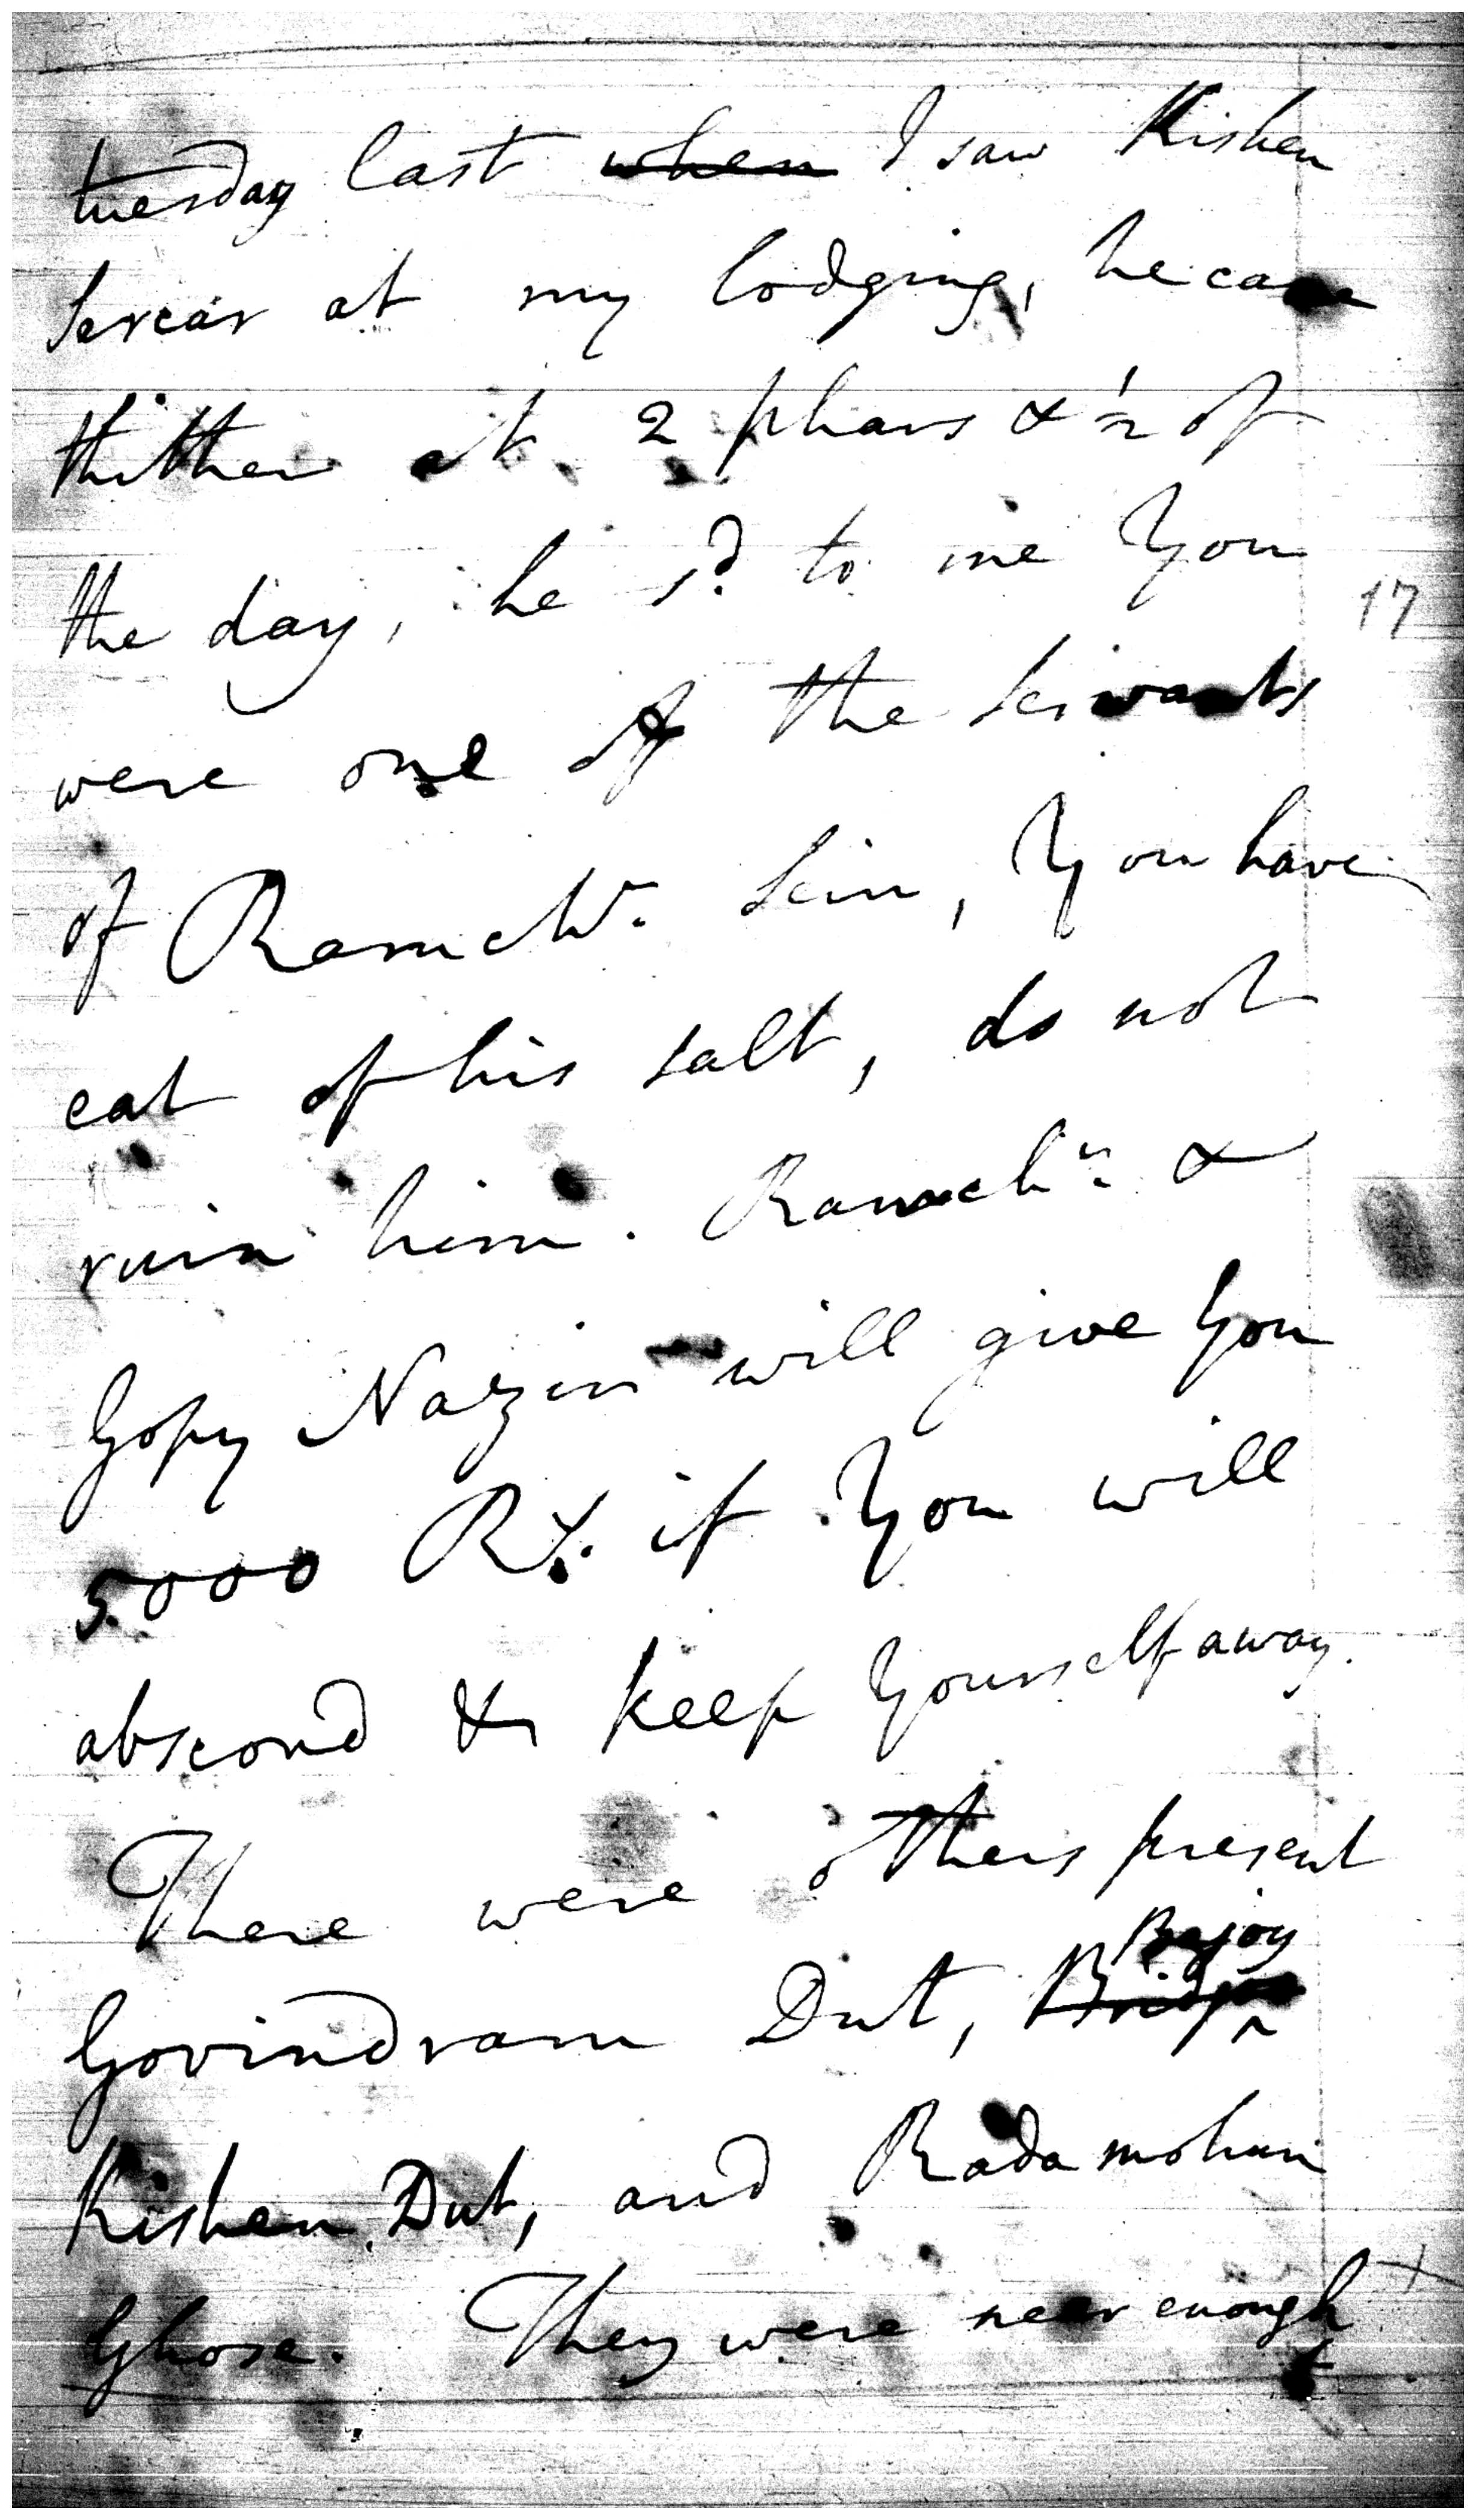 tuesday last when I saw Kishen
Sercar at my lodging, he came
thither at 2 phars & ½ of
the day, he sd. to me You
17
were one of the Servants
of Ramchr. Sein, You have
eat of his salt, do not
ruin him. Ramchn. &
Gopy Nazir will give You
5000 Rs. if You will
abscond & keep Yourself away.
There were others present
Bejoy
Govindram Dut,
Kishen Dut, and Radamohun
Ghose. They were near enough